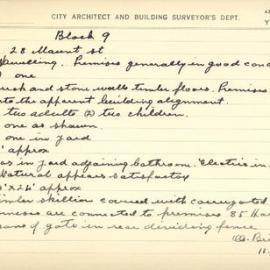 CITY ARCHITECT AND BUILDING SURVEYOR'S DEPT.
Block 9
28 Mount st
Dwelling. Premises generally in good cond
one
and stone walls timber floors. Premises
to the apparent building alignment.
two adults (2) two children.
one as shown
one in yard
' approx
in yard adjoining bathroom. Electric in
Natural appears satisfactory
x 24' approx
skillion covered with corrugated
are connected to premises 85 Ha
of gate in rear dividing fence
11.